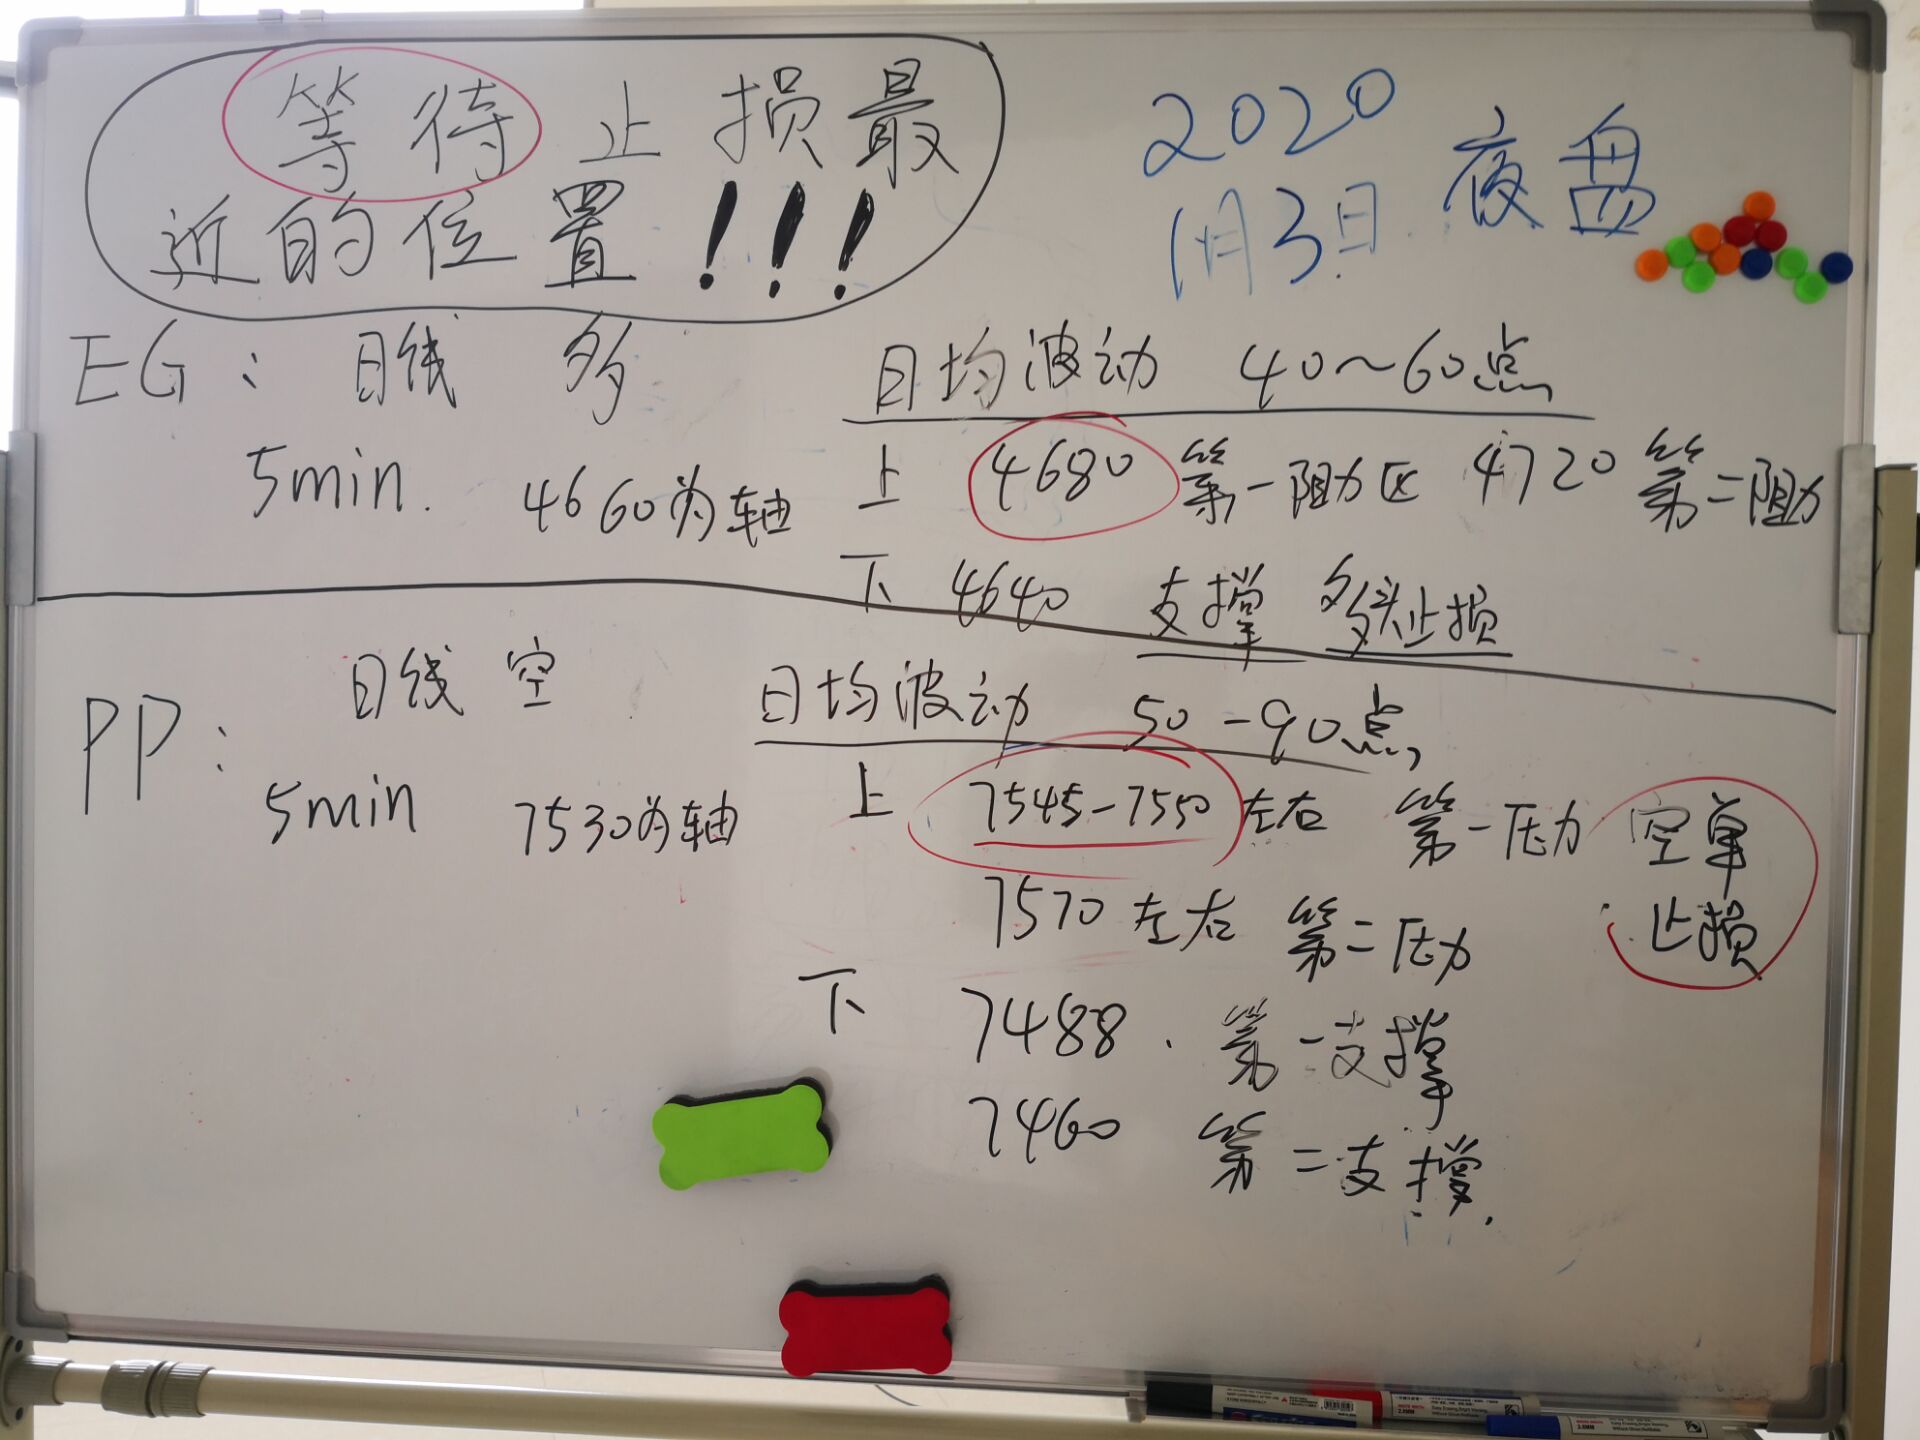 等待止损最
近的位置！！！
2020
1月3日.夜盘
EG： 日线 多
日均波动 40～60点
5min. 4660为轴
上 4680 第一阻力区 4720 第二阻力
下 4640 支撑 多头止损
PP： 日线 空
日均波动 50－90点
5min 7530为轴
上 7545－7550左右 第一压力 空单
止损
7570左右 第二压力
下 7488. 第一支撑
7460 第二支撑.